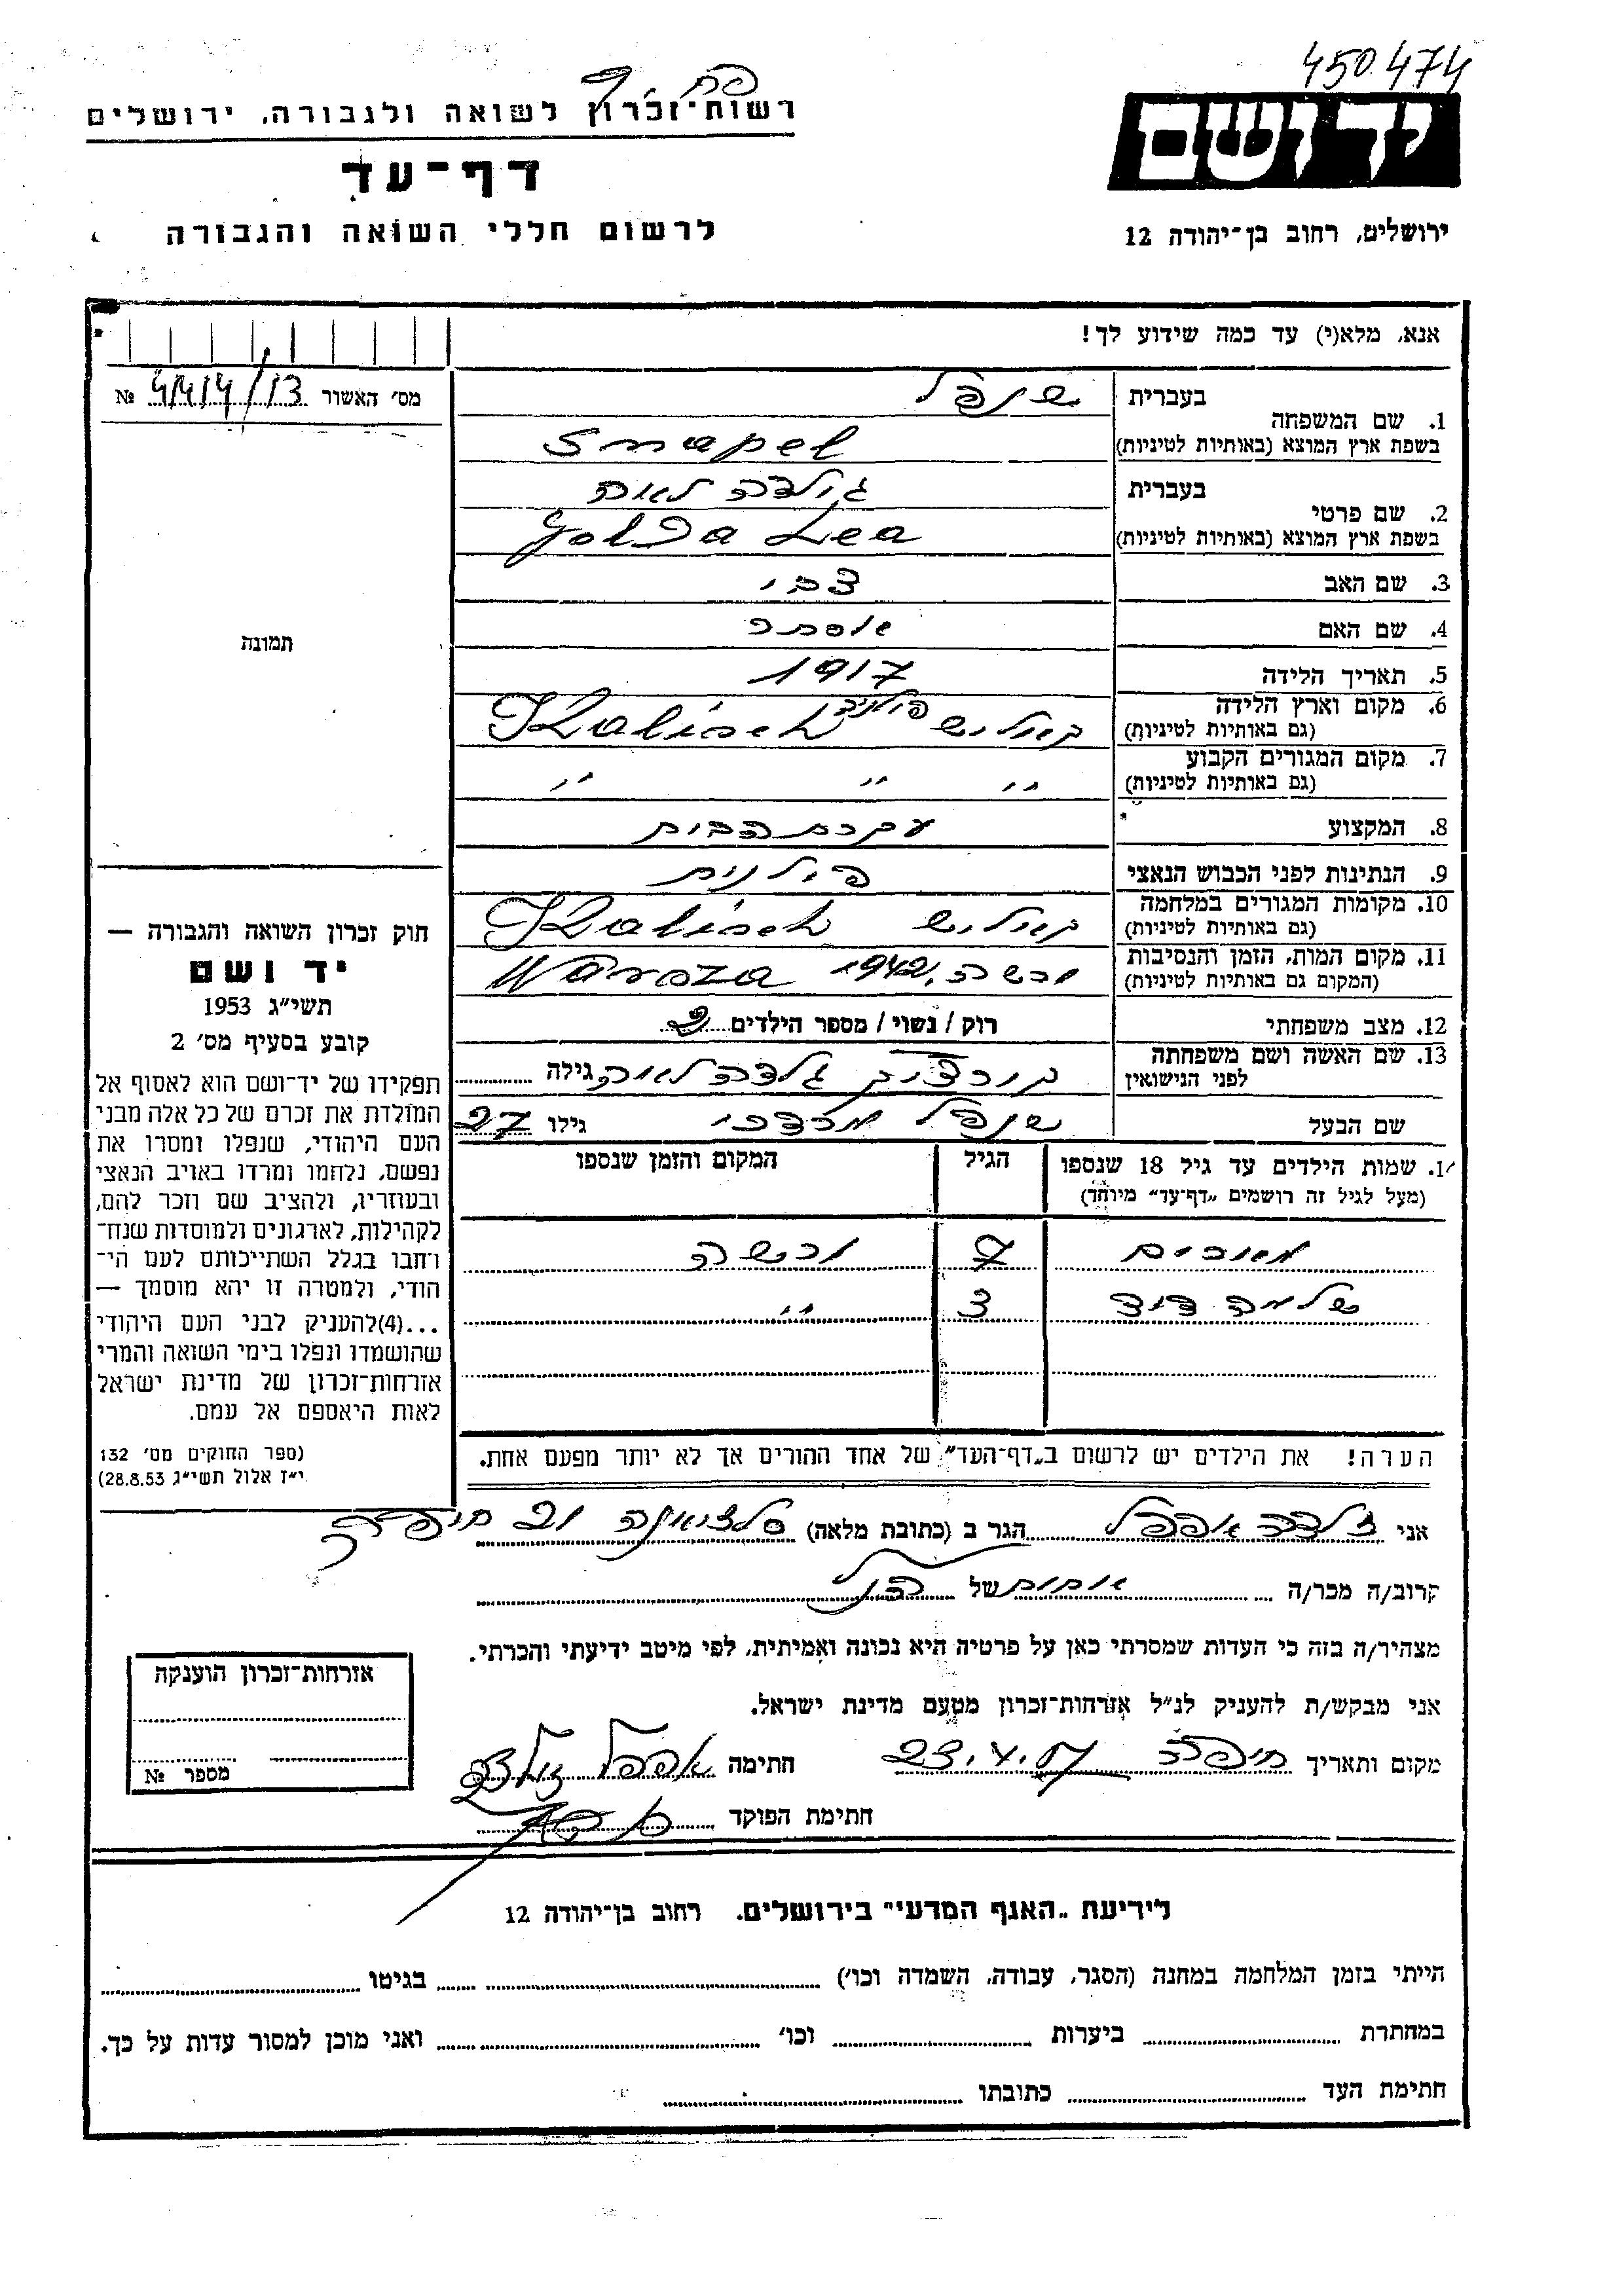 450474
רשות־זכרון לשואה ולגבורה, ירושלים
יד ושם
דף־עד
לרשום חללי השואה והגבורה
ירושלים, רחוב בן־יהודה 12
אנא, מלא(י) עד כמה שידוע לך!
מס׳ האשור
1. שם המשפחה
בעברית שנפל
בשפת ארץ המוצא (באותיות לטיניות) Snapel
2. שם פרטי
בעברית גולדה לאה
בשפת ארץ המוצא (באותיות לטיניות) Golda Lea
3. שם האב צבי
4. שם האם אסתר
5. תאריך הלידה 1917
6. מקום וארץ הלידה (גם באותיות לטיניות) קאליש פולניה Kalisch
7. מקום המגורים הקבוע (גם באותיות לטיניות) " " "
8. המקצוע עקרת הבית
9. הנתינות לפני הכבוש הנאצי פולנית
10. מקומות המגורים במלחמה (גם באותיות לטיניות) קאליש Kalisch
11. מקום המות, הזמן והנסיבות (המקום גם באותיות לטיניות) ורשה, 1942 Warsza
12. מצב משפחתי רוק / נשוי / מספר הילדים 2
13. שם האשה ושם משפחתה לפני הנישואין גלדה לאה גילה
שם הבעל שנפל מרדכי גילו 27
תמונה
14. שמות הילדים עד גיל 18 שנספו הגיל המקום והזמן שנספו
(מעל לגיל זה רושמים „דף־עד״ מיוחד)
7 ורשה
שלמה דוד 3 "
הערה! את הילדים יש לרשום ב„דף־העד״ של אחד ההורים אך לא יותר מפעם אחת.
חוק זכרון השואה והגבורה —
יד ושם
תשי״ג 1953
קובע בסעיף מס׳ 2
תפקידו של יד־ושם הוא לאסוף אל
המולדת את זכרם של כל אלה מבני
העם היהודי, שנפלו ומסרו את
נפשם, נלחמו ומרדו באויב הנאצי
ובעוזריו, ולהציב שם וזכר להם,
לקהילות, לארגונים ולמוסדות שנח־
רחבו בגלל השתייכותם לעם הי־
הודי, ולמטרה זו יהא מוסמך —
...(4)להעניק לבני העם היהודי
שהושמדו ונפלו בימי השואה והמרי
אזרחות־זכרון של מדינת ישראל
לאות היאספם אל עמם.
(ספר החוקים מס׳ 132
י״ז אלול תשי״ג 28.8.53)
אני זלדה אפפל הגר ב (כתובת מלאה) חיפה
קרוב/ה מכר/ה אחות של הנ״ל
מצהיר/ה בזה כי העדות שמסרתי כאן על פרטיה היא נכונה ואמיתית, לפי מיטב ידיעתי והכרתי.
אני מבקש/ת להעניק לנ״ל אזרחות־זכרון מטעם מדינת ישראל.
מקום ותאריך חיפה חתימה אפפל זלדה
חתימת הפוקד
אזרחות־זכרון הוענקה
מספר №
לידיעת „האגף המדעי״ בירושלים. רחוב בן־יהודה 12
הייתי בזמן המלחמה במחנה (הסגר, עבודה, השמדה וכו׳) בגיטו
במחתרת ביערות וכו׳ ואני מוכן למסור עדות על כך.
חתימת העד כתובתו